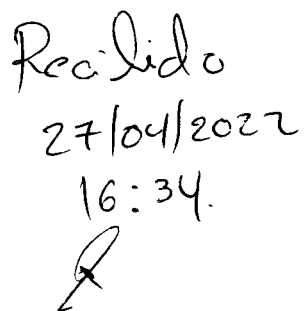 Recibido
27/04/2022
16:34.